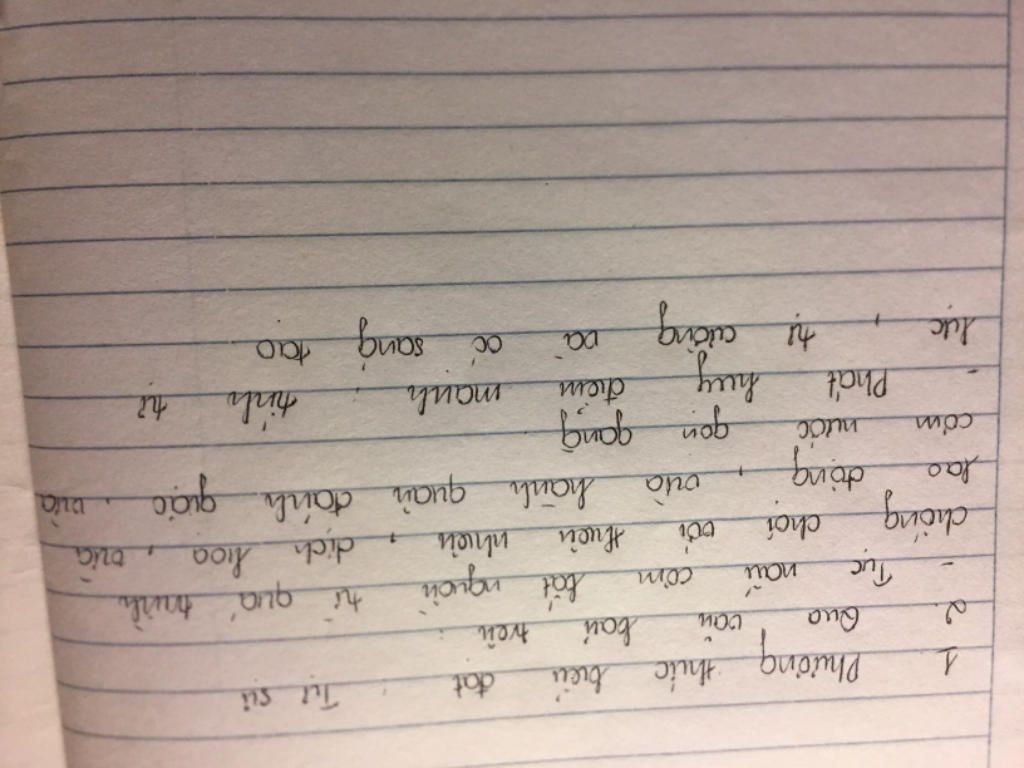 1 Phương thức biểu đạt : Tự sự
2. Qua văn bản trên :
- Tục nấu cơm bắt nguồn từ quá trình
chống chọi với thiên nhiên, địch hoạ, vừa
lao động, vừa hành quân đánh giặc, vừa
cơm nước gọn gàng
- Phát huy điểm mạnh : tính tự
lực, tự cường và óc sáng tạo